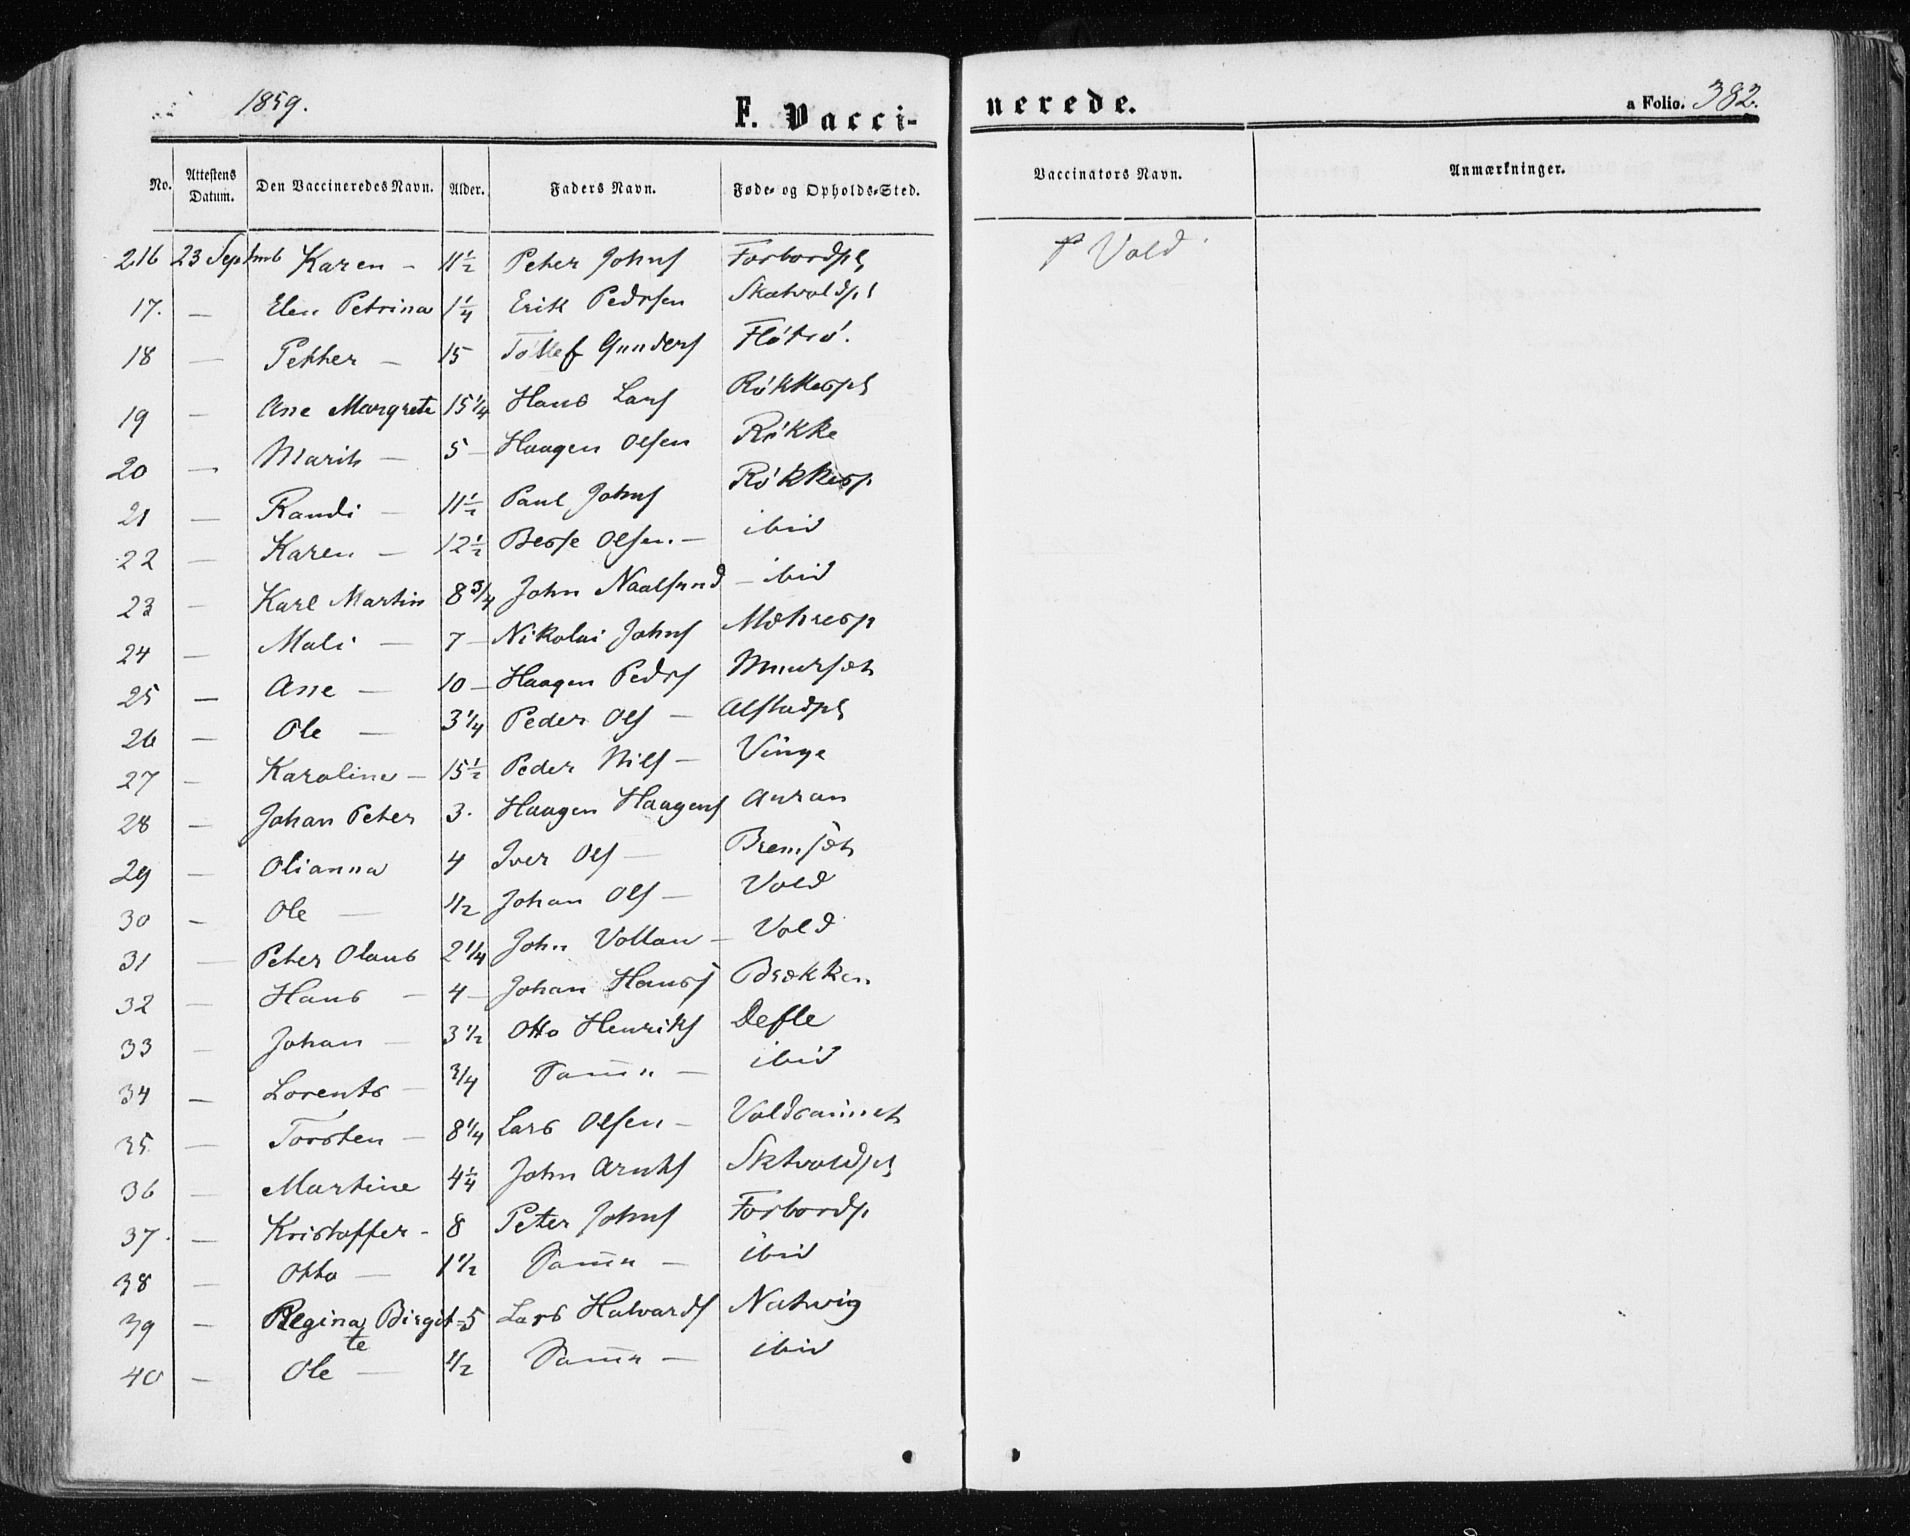 1859.
F. Vacci-
nerede.
a Folio. 382.
No. Attestens Datum. Den Vaccineredes Navn. Alder. Faders Navn. Føde- og Opholds-Sted. Vaccinators Navn. Anmærkninger.
216 23 Septmb Karen - 11½ Peter Johns Forbordpl P Vold
17. — Elen Petrina 1¼ Erik Pedrsen Skatvoldpl
18 — Petter — 15 Tøllef Gunders Fløtrø.
19 — Ane Margrete 15¼ Hans Lars Røkkespl
20 — Marit — 5 — Haagen Olsen Røkke
21 — Randi — 11½ Paul Johns Røkkesp
22 — Karen — 12½ Olsen. — ibid
23 — Karl Martin 8¾ John Naalsund — ibid
24 — Mali — 7 — Nikolai Johns Mæhresp
25 — Ane — 10 — Haagen Pedrs
26 — Ole — 3¼ Peder Ols — Alstadpl
27 — Karoline — 15½ Peder Nils — Vinge
28 — Johan Peter 3. Haagen Haagens Auran
29 — Olianna 4 Iver Ols — Bremsæt
30 — Ole — ½ Johan Ols — Vold
31 — Peter Olaus 2¼ John Vollan — Vold
32 — Hans — 4 — Johan Hans Brækken
33 — Johan — 3½ Otto Henriks Defle
34 — Lorents — ¾ Samme — ibid
35 — Torsten — 8¼ Lars Olsen —
36 — Martine 4¼ John Arnts Sktvoldpl
37. — Kristoffer - 8 Peter Johns Forbordp
38 — Otto — 1½ Samme — ibid
39 — Regina Birgitte 5 Lars Halvards Natvig
40 — Ole — ½ Samme — ibid